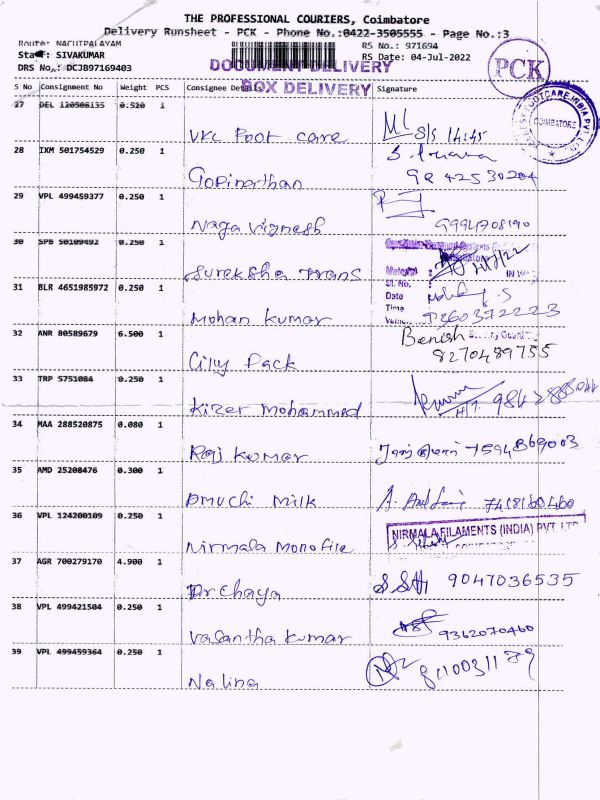 THE PROFESSIONAL COURIERS, Coimbatore
Delivery Runsheet - PCK - Phone No.:0422-3505555 - Page No.:3
Route: NACHIPALAYAM
RS No.: 971694
Staff: SIVAKUMAR
RS Date: 04-Jul-2022
DRS No.: DCJB97169403
DOCUMENT DELIVERY
BOX DELIVERY
PCK
COIMBATORE
S No Consignment No Weight PCS Consignee Details Signature
27 DEL 120506135 0.520 1
VKC Foot care 8/5 14:45
28 IXM 501754529 0.250 1
Gopinathan
29 VPL 499459377 0.250 1
Naga Vignesh 9994708190
30 SPB 50109492 0.250 1
Sureksha Trans
Material
Sl. No.
Date
Time
31 BLR 4651985972 0.250 1
Mohan Kumar 9360372223
32 ANR 80589679 6.500 1
City Pack Benish 8270489755
33 TRP 5751084 0.250 1
Kizer Mohammed
34 MAA 288520875 0.080 1
Raj Kumar 7594869003
35 AMD 25208476 0.300 1
Milk
36 VPL 124200109 0.250 1
NIRMALA FILAMENTS (INDIA) PVT LTD
Nirmala Monofile
37 AGR 700279170 4.900 1
Dr Chaya 9047036535
38 VPL 499421504 0.250 1
Vasantha Kumar 9362070460
39 VPL 499459364 0.250 1
Nalina